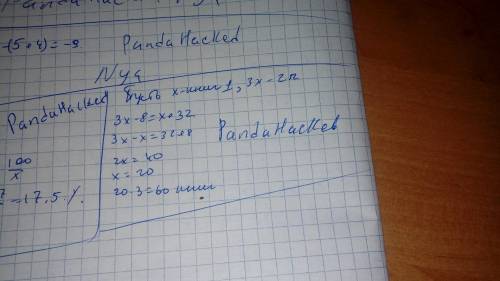 -(5+4)=-9
PandaHacked
Nya
PandaHacked
100
x
=17,5%
Пусть x-книг 1, 3x-2п
3x-8=x+32
3x-x=32+8
2x=40
x=20
20·3=60 книг
PandaHacked